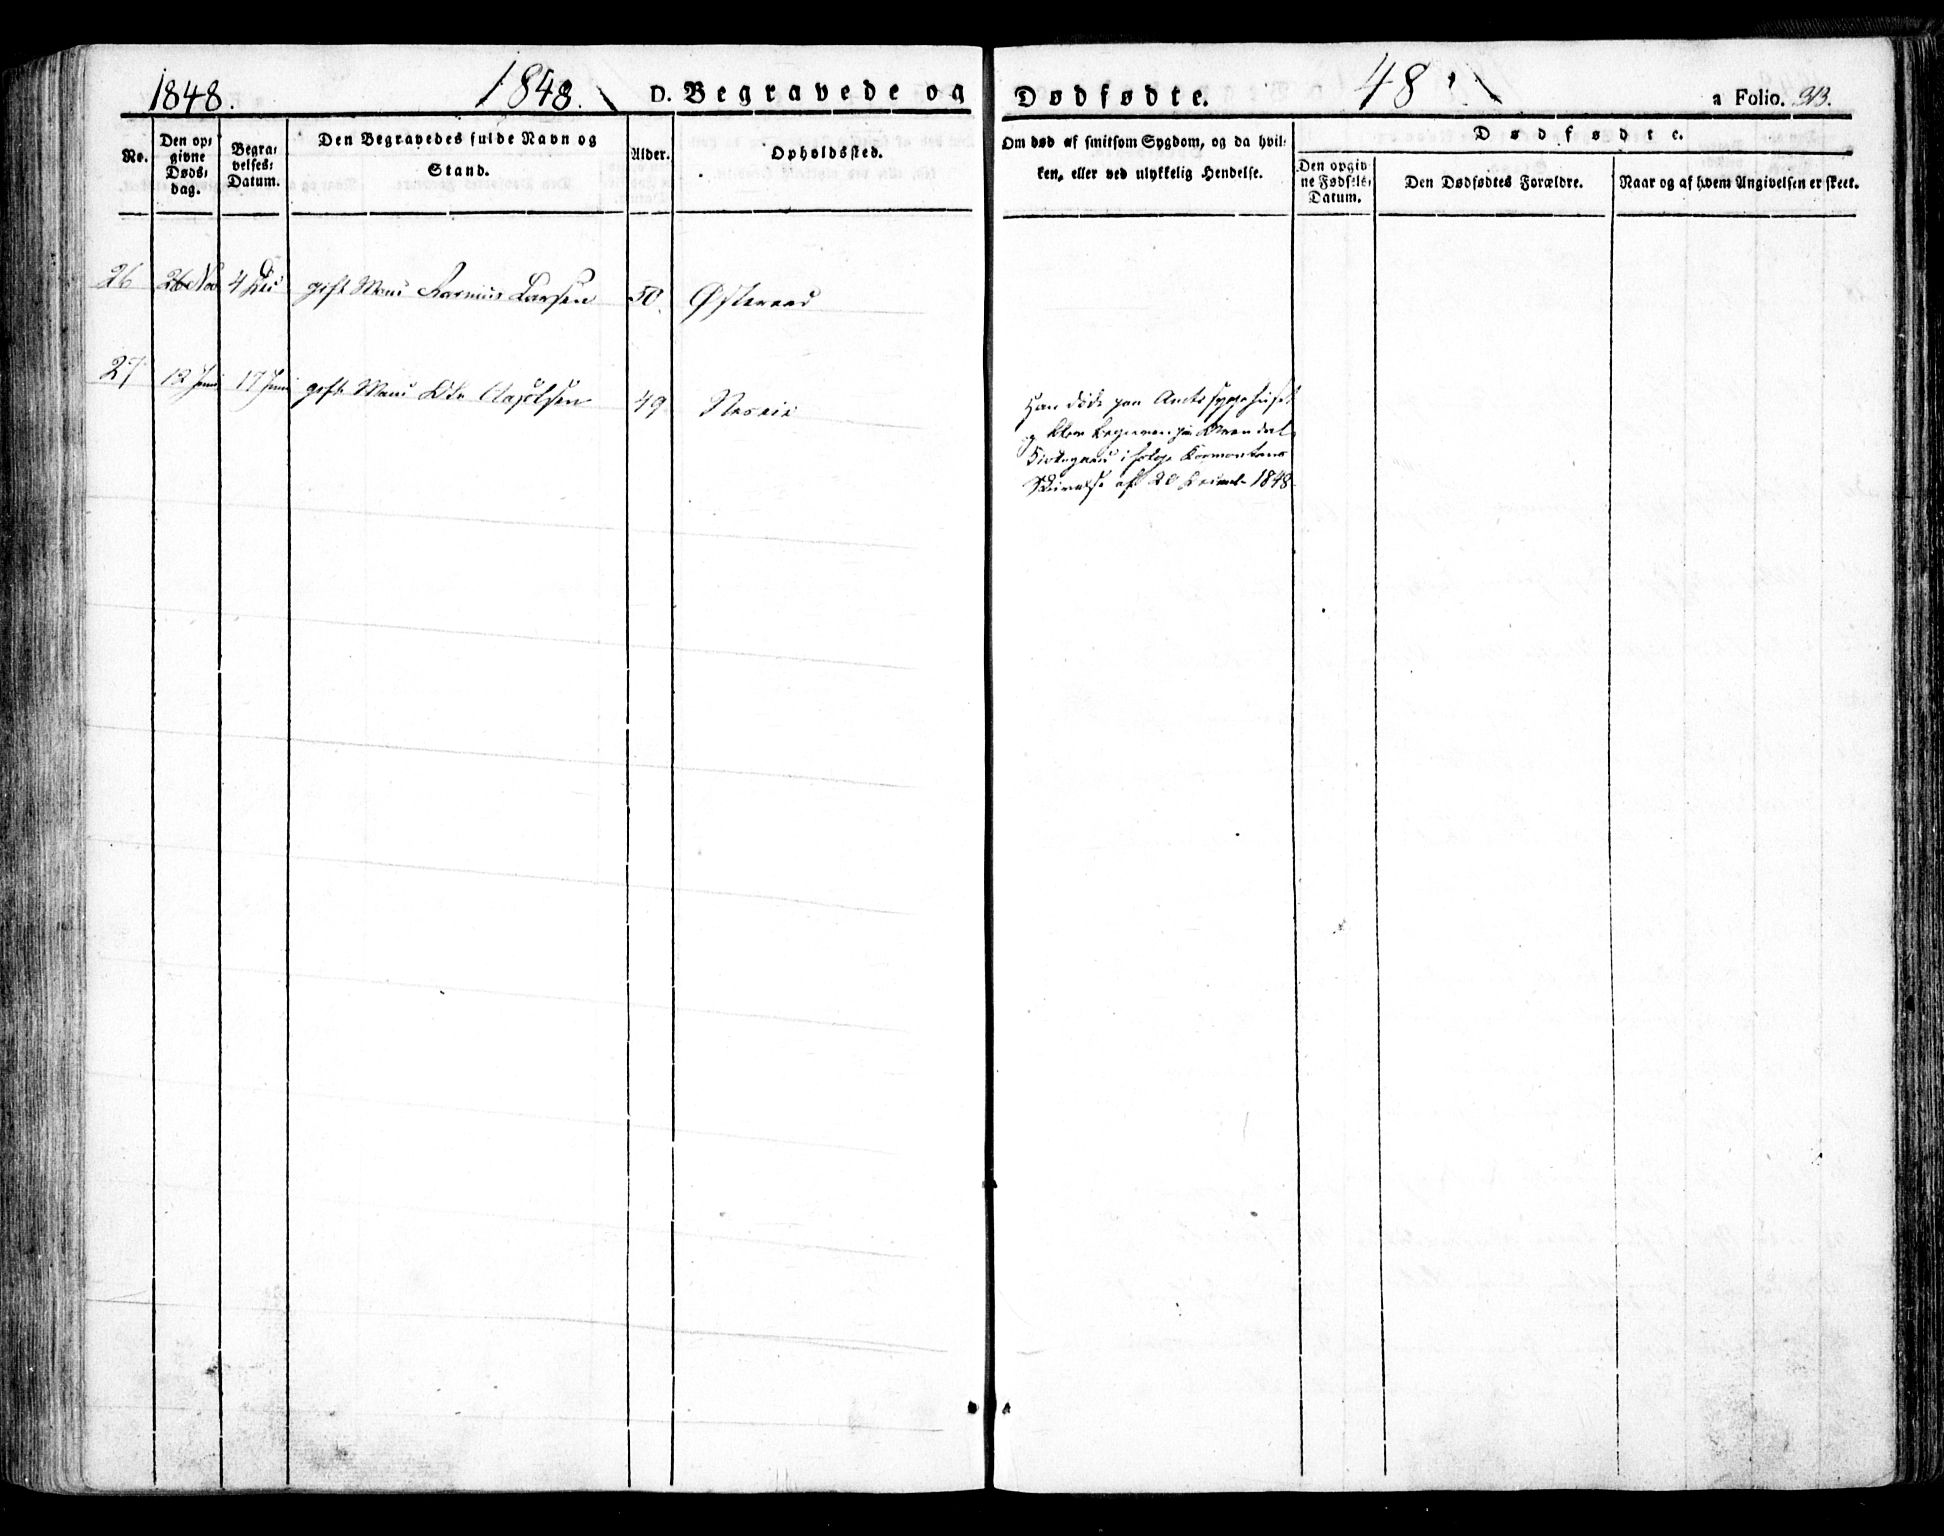 1848.
1848.
D. Begravede og
Dødfødte.
48
a Folio. 313.
No.
Den op-
givne
Døds-
dag.
Begra-
velses-
Datum.
Den Begravedes fulde Navn og
Stand.
Alder.
Opholdssted.
Om død af smitsom Sygdom, og da hvil-
ken, eller ved ulykkelig Hendelse.
Dødfødte.
Den opgiv-
ne Fødsels-
Datum.
Den Dødfødtes Forældre.
Naar og af hvem Angivelsen er skeet.
26 26 Nov 4 Dec gift Mand Rasmus Larsen 50. Østeraad
27 12 Juni 17 Juni gift Mand Ole 49
Han døde paa Amtssygehuset
og blev begraven paa Arendals
Kirkegaard ifølge
Skrivelse af 20 1848